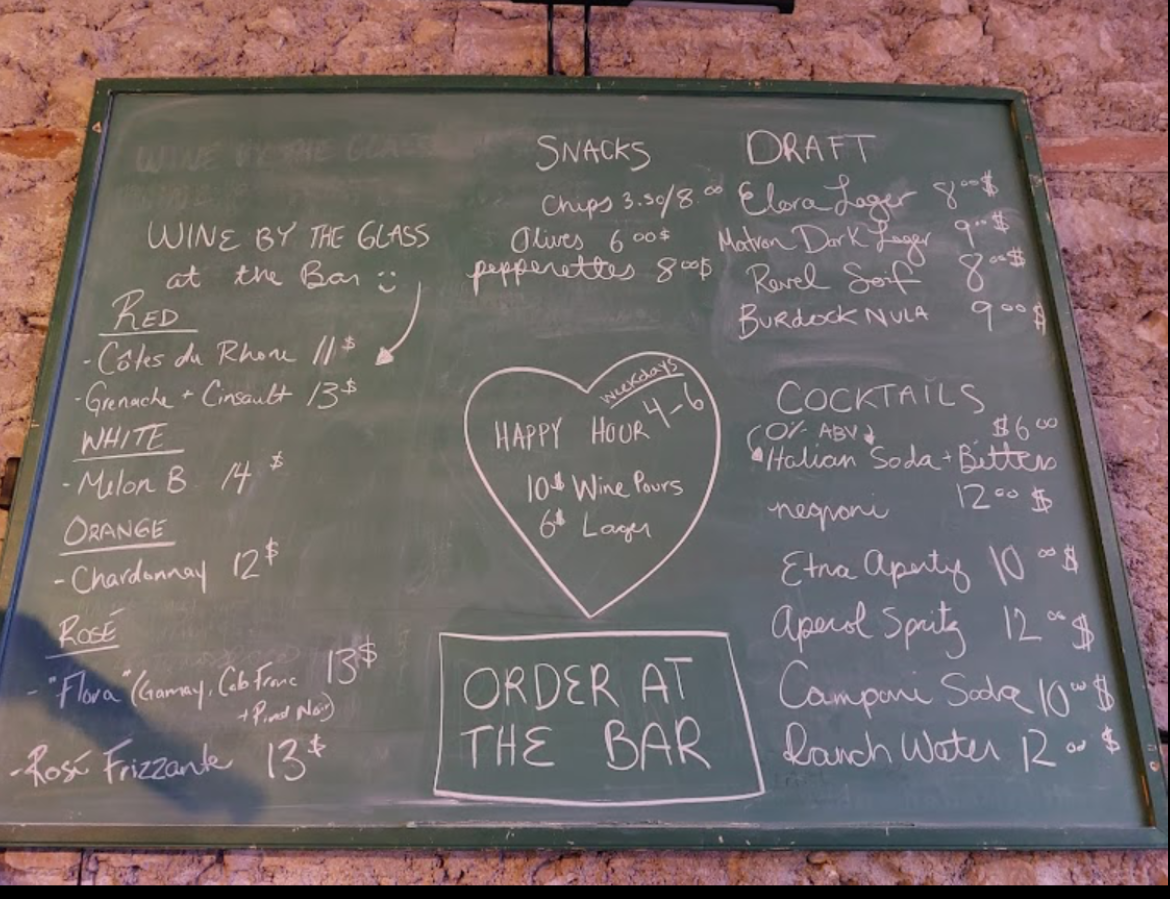 WINE BY THE GLASS
WINE BY THE GLASS
at the Bar :)
RED
- Côtes du Rhone 11$
- Grenache + Cinsault 13$
WHITE
- Melon B. 14$
ORANGE
- Chardonnay 12$
ROSÉ
- "Flora" (Gamay, Cab Franc 13$
+ Pinot Noir)
- Rosé Frizzante 13$
SNACKS
Chips 3.50/8.00
Olives 6 00$
pepperettes 8 00$
WEEKdays
4-6
HAPPY HOUR
10$ Wine Pours
6$ Lager
ORDER AT
THE BAR
DRAFT
Elora Lager 8 00$
Matron Dark Lager 9 00$
Revel Soif 8 00$
BURDOCK NULA 9 00$
COCKTAILS
(0% ABV) $6 00
Italian Soda + Bitters
negroni 12 00 $
Etna Aperitz 10 00 $
Aperol Spritz 12 00 $
Campari Soda 10 00 $
Ranch Water 12 00 $